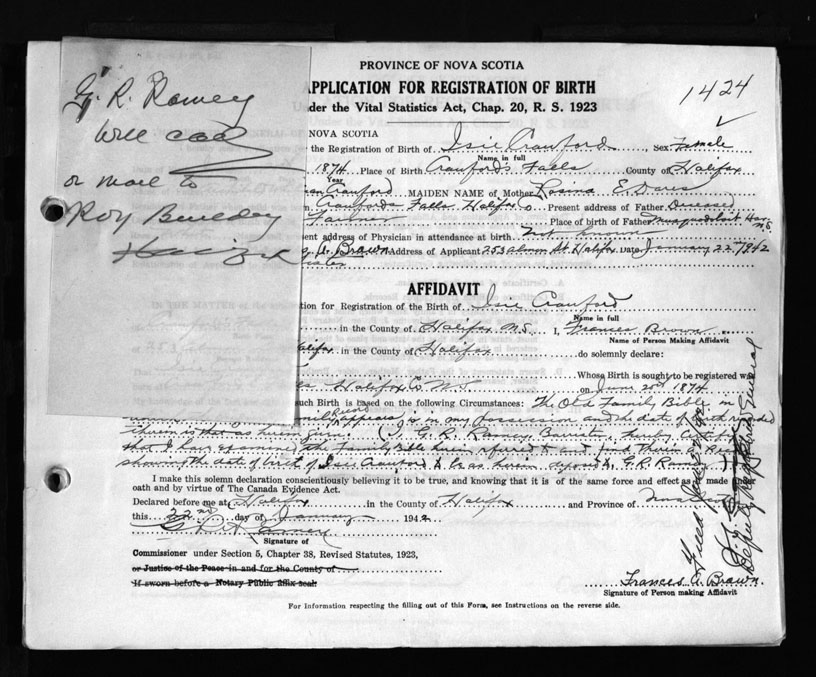 G. R. Ramey
will call
or mail to
Roy
PROVINCE OF NOVA SCOTIA
APPLICATION FOR REGISTRATION OF BIRTH
der the Vital Statistics Act, Chap. 20, R. S. 1923
1424
NOVA SCOTIA
the Registration of Birth of Isie Crawford Sex Female
Name in full
1874 Place of Birth Crawford's Falls County of Halifax
Year
Crawford MAIDEN NAME of Mother Rosina E. Davis
Crawfords Falls Halifax Co. Present address of Father Deceased
Farmer Place of birth of Father Musquodoboit Har. N.S.
sent address of Physician in attendance at birth Not known
A. Brown Address of Applicant 253 St Halifax Date January 22nd 1942
AFFIDAVIT
tion for Registration of the Birth of Isie Crawford
Name in full
in the County of Halifax N.S. I, Frances Brown
Name of Person Making Affidavit
alifax in the County of Halifax do solemnly declare:
Whose Birth is sought to be registered was
Halifax Co N.S. on June 20th 1874
such Birth is based on the following Circumstances: The Old Family Bible in
Record appears is in my possession and the date of birth recorded
therein is that as herein given (I G. R. Ramey Barrister, hereby certify
that I have examined the Family Bible herein referred to and find therein a Record
showing the date of birth of Isie Crawford to be as herein G. R. Ramey)
I make this solemn declaration conscientiously believing it to be true, and knowing that it is of the same force and effect as if made
oath and by virtue of The Canada Evidence Act.
Declared before me at Halifax in the County of Halifax and Province of Nova Scotia
this 22nd day of January 1942
G. R. Ramey
Signature of
Commissioner under Section 5, Chapter 38, Revised Statutes, 1923,
or Justice of the Peace in and for the County of
If sworn before a Notary Public affix seal.
Frances A. Brown.
Signature of Person making Affidavit
For Information respecting the filling out of this Form, see Instructions on the reverse side.
Deputy Registrar General